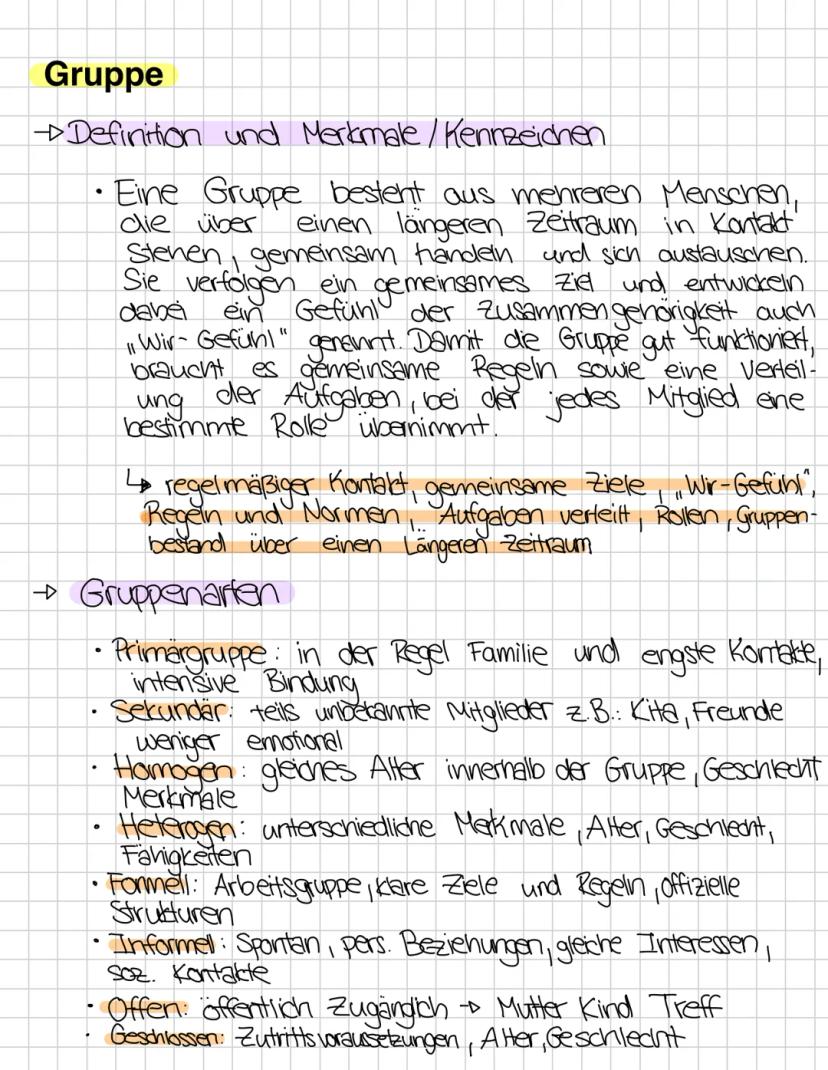 Gruppe
→ Definition und Merkmale / Kennzeichen
• Eine Gruppe besteht aus mehreren Menschen,
die über einen längeren Zeitraum in Kontakt
stehen, gemeinsam handeln und sich austauschen.
Sie verfolgen ein gemeinsames Ziel und entwickeln
dabei ein Gefühl der Zusammengehörigkeit auch
„Wir-Gefühl" genannt. Damit die Gruppe gut funktioniert,
braucht es gemeinsame Regeln sowie eine Verteil-
ung der Aufgaben, bei der jedes Mitglied eine
bestimmte Rolle übernimmt.
↳ regelmäßiger Kontakt, gemeinsame Ziele, „Wir-Gefühl",
Regeln und Normen, Aufgaben verteilt, Rollen, Gruppen-
bestand über einen Längeren Zeitraum
→ Gruppenarten
• Primärgruppe: in der Regel Familie und engste Kontakte,
intensive Bindung
• Sekundär: teils unbekannte Mitglieder z.B.: Kita, Freunde
weniger emotional
• Homogen: gleiches Alter innerhalb der Gruppe, Geschlecht
Merkmale
• Heterogen: unterschiedliche Merkmale, Alter, Geschlecht,
Fähigkeiten
• Formell: Arbeitsgruppe, klare Ziele und Regeln, offizielle
Strukturen
• Informell: Spontan, pers. Beziehungen, gleiche Interessen,
soz. Kontakte
• Offen: öffentlich Zugänglich → Mutter Kind Treff
• Geschlossen: Zutrittsvoraussetzungen, Alter, Geschlecht